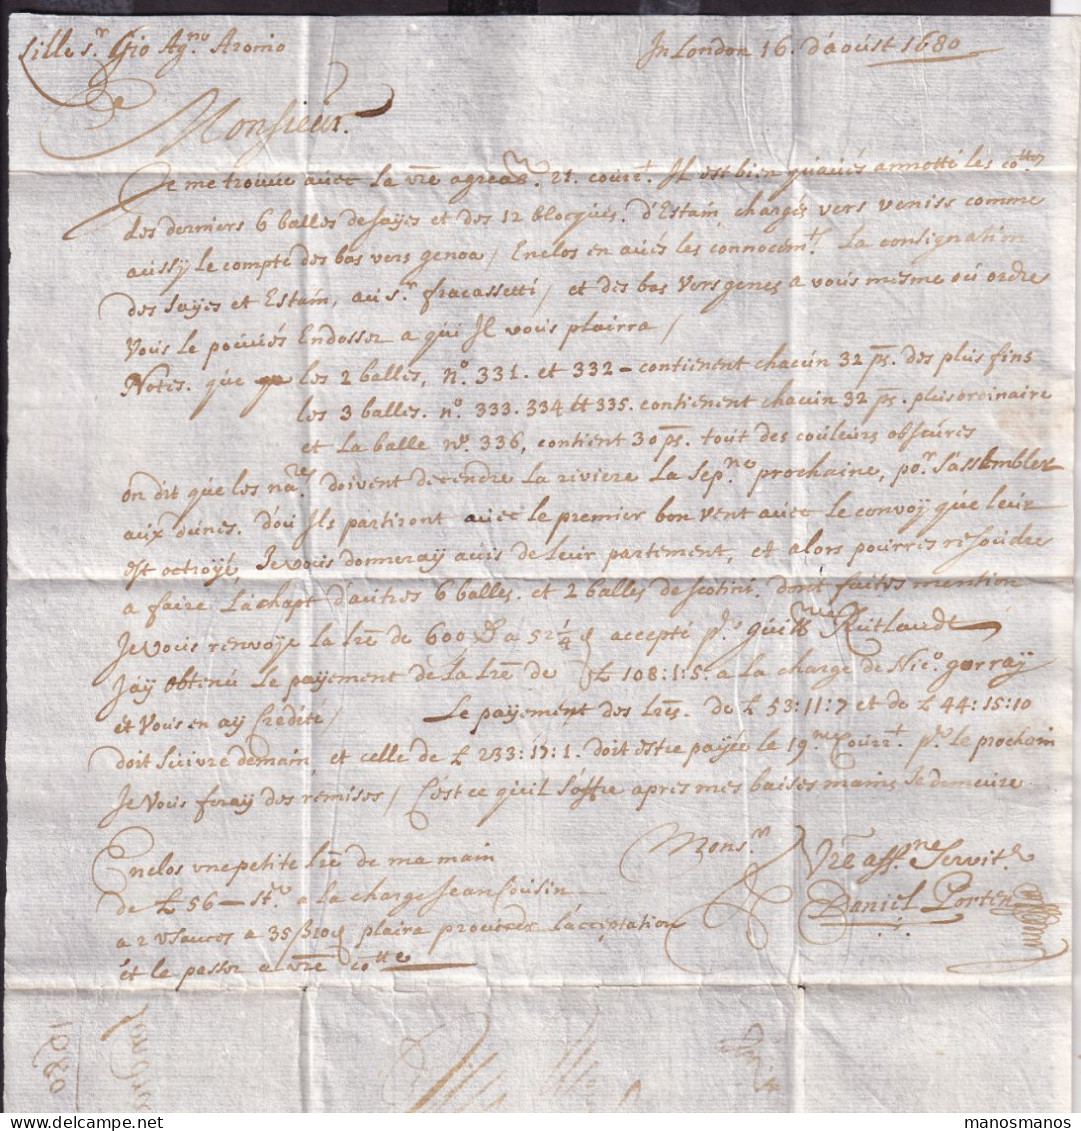 Lille Sr. Gio Agno. Aronio
In London 16. d'aoust 1680
Monsieur.
Je me trouve avec la vre agreable 21. court. Il est bien qu'aves annotté les cottes
des derniers 6 balles de sayes et des 12 blocques. d'Estain chargés vers venise comme
aussÿ le compte des bas vers genoa / Enclos en avés les connocimts. La consignation
des sayes et Estain, au Sr. fracassetti / et des bas vers genes a vous mesme ou ordre
vous le pouvés Endosser a qui Il vous plairra /
Notes. que les 2 balles, no. 331. et 332 - contienent chacun 32 ps. des plus fins
les 3 balles. no. 333. 334 et 335. contienent chacun 32 ps. plus ordinaire
et La balle no. 336, contient 30 ps. tout des couleurs obscures
on dit que les nares. doivent decendre la riviere La sepne. prochaine, por. s'assembler
aux dunes. d'ou Ils partiront avecq le premier bon vent avec le convoÿ que leur
est octroÿé, Je vous donneraÿ avis de leur partement, et alors pourres resoudre
a faire L'achapt d'autres 6 balles. et 2 balles de scotins. dont faites mention
Je vous renvoÿe la lre de 600 a 52 1/4 accepté pr. Rutlandt
J'aÿ obtenu le paÿement de la lre de £ 108:1:5. a la charge de Nico. gorraÿ
et vous en aÿ Crédité / Le paÿement des lres. de £ 53:11:7 et de £ 44:15:10
doit suivre demain, et celle de £ 233:17:1. doit estre paÿée le 19me Courrt. pr. le prochain
Je vous feraÿ des remises / C'est ce qu'il s'offre apres mes baises mains Je demeure
Monsr.
Vre affne Servitr
Daniel Porten
Enclos vne petite lre de ma main
de £ 56 - st. a la charge Jean Cousin
a 2 vsances a 35 plaira procurer l'acceptation
et le passer a vre cotte
1680